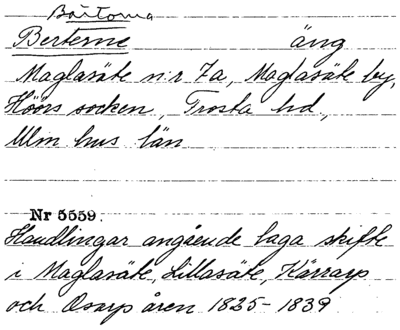 Bårtorna
Berterne äng
Maglasäte n:r 7a, Maglasäte by,
Höörs socken, Frosta hd,
Mlm hus län
Nr 5559.
Handlingar angående laga skifte
i Maglasäte, Lillasäte, Kärrarp
och Osarp åren 1825-1839